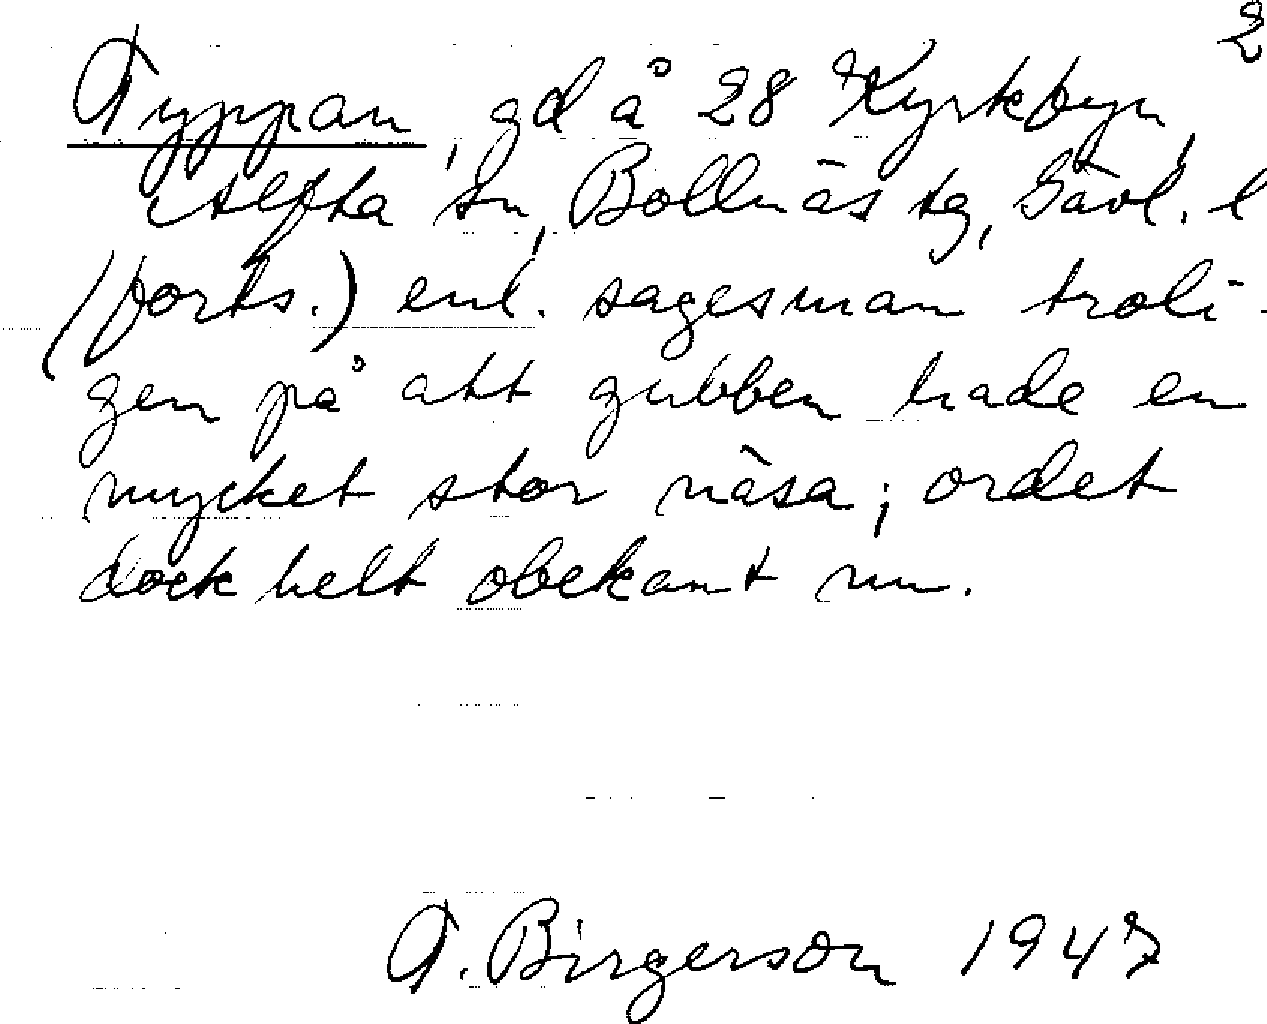 2
Typpan, gd å 28 Kyrkbyn,
Alfta sn, Bollnäs tg, Gävl. l
(forts.) enl. sagesman troli-
gen på att gubben hade en
mycket stor näsa; ordet
dock helt obekant nu.
T. Birgerson 1947